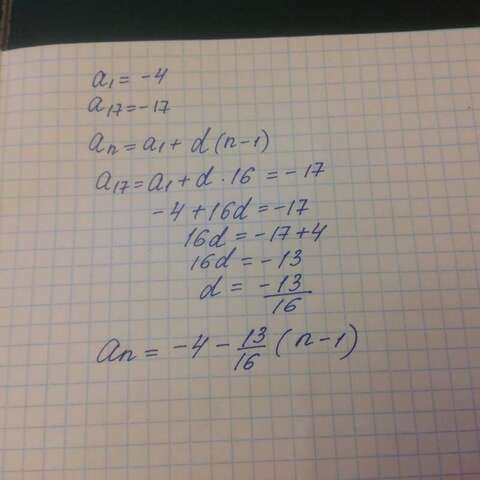 a₁ = -4
a₁₇ = -17
aₙ = a₁ + d (n-1)
a₁₇ = a₁ + d · 16 = -17
-4 + 16d = -17
16d = -17 + 4
16d = -13
d = -13/16
aₙ = -4 - 13/16 (n-1)